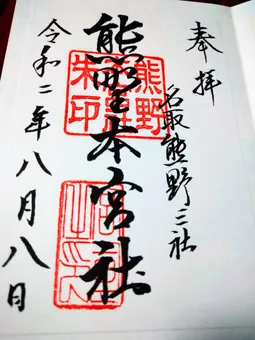 奉拝
名取熊野三社
熊野本宮社
令和二年八月八日
熊野
朱印